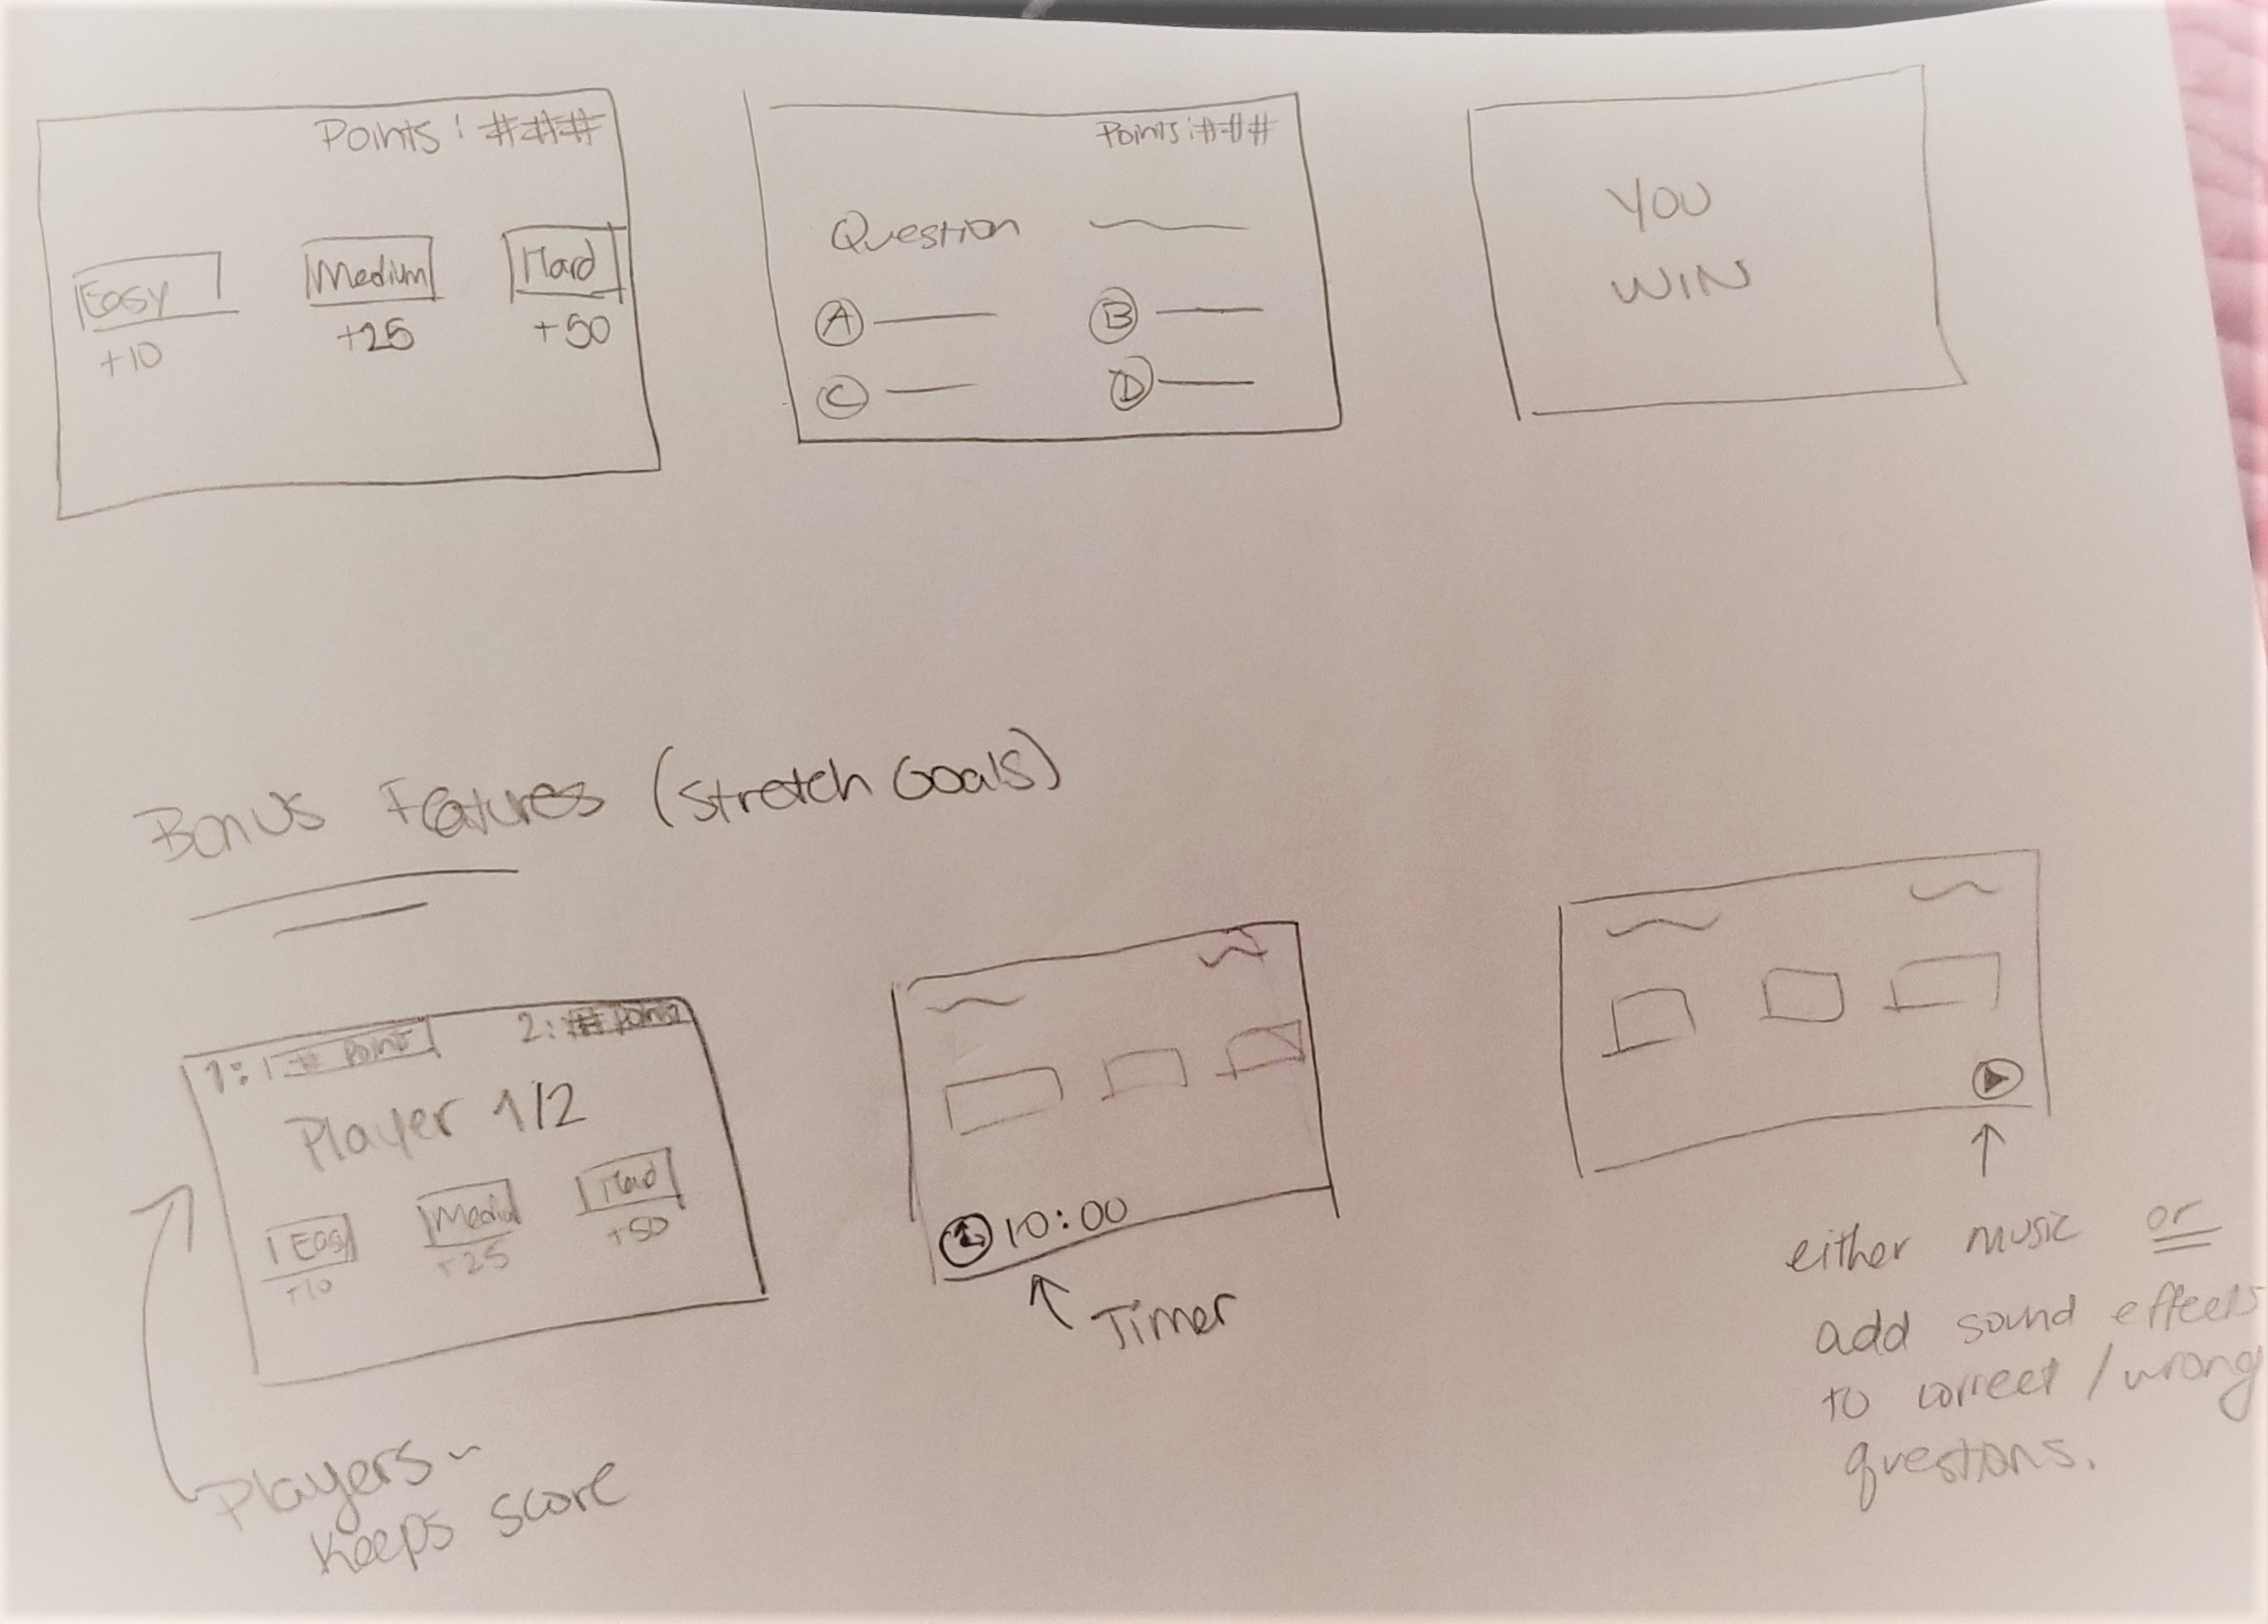 Points: ###
Easy
+10
Medium
+25
Hard
+50
Points: ###
Question
A
B
C
D
YOU
WIN
Bonus Features (stretch Goals)
1: # Point
2: ## Points
Player 1/2
Easy
+10
Medium
+25
Hard
+50
Players-
Keeps score
10:00
Timer
either music or
add sound effects
to correct / wrong
questions.